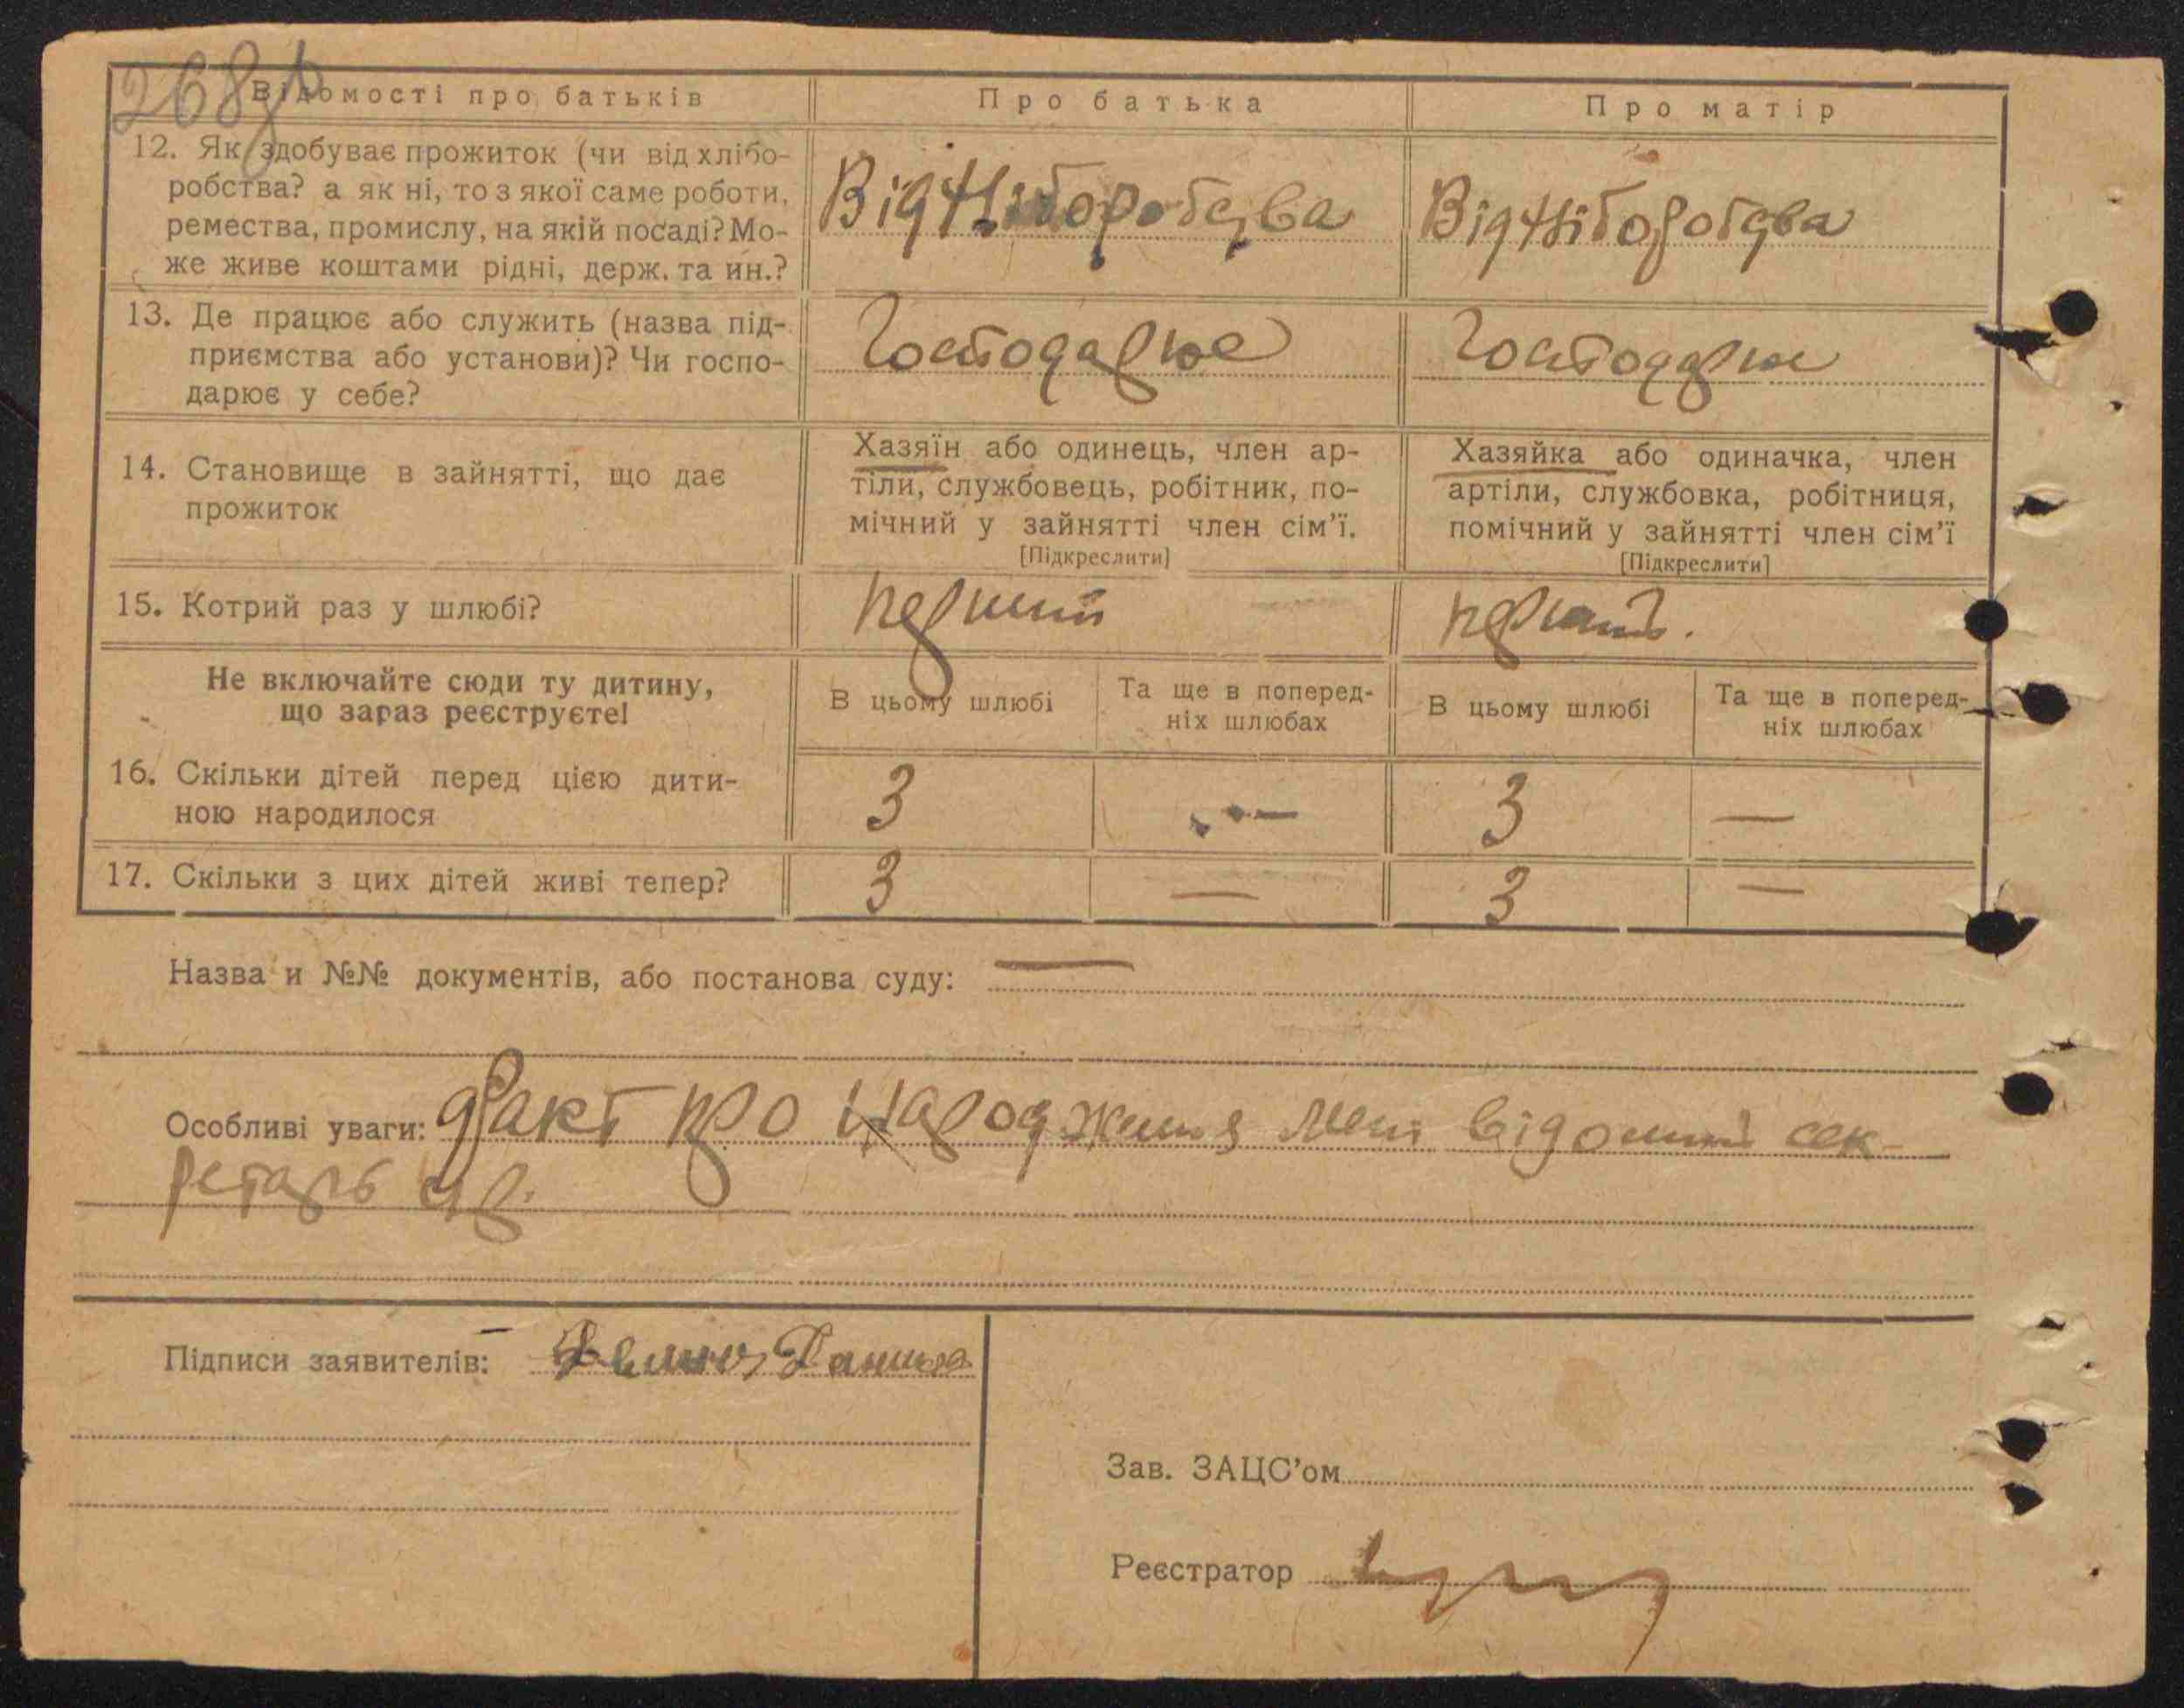 268
Відомості про батьків
Про батька
Про матір
12. Як здобуває прожиток (чи від хлібо-
робства? а як ні, то з якої саме роботи,
ремества, промислу, на якій посаді? Мо-
же живе коштами рідні, держ. та ин.?
Від хліборобства
Від хліборобства
13. Де працює або служить (назва під-
приємства або установи)? Чи госпо-
дарює у себе?
Господарює
Господарює
14. Становище в зайнятті, що дає
прожиток
Хазяїн або одинець, член ар-
тіли, службовець, робітник, по-
мічний у зайнятті член сім'ї.
[Підкреслити]
Хазяйка або одиначка, член
артіли, службовка, робітниця,
помічний у зайнятті член сім'ї
[Підкреслити]
15. Котрий раз у шлюбі?
перший
перший.
Не включайте сюди ту дитину,
що зараз реєструєте!
В цьому шлюбі
Та ще в поперед-
ніх шлюбах
В цьому шлюбі
Та ще в поперед-
ніх шлюбах
16. Скільки дітей перед цією дити-
ною народилося
3 — 3 —
17. Скільки з цих дітей живі тепер?
3 — 3 —
Назва и №№ документів, або постанова суду: —
Особливі уваги: факт про народження мені відомий сек
ретарь
Підписи заявителів:
Зав. ЗАЦС'ом
Реєстратор